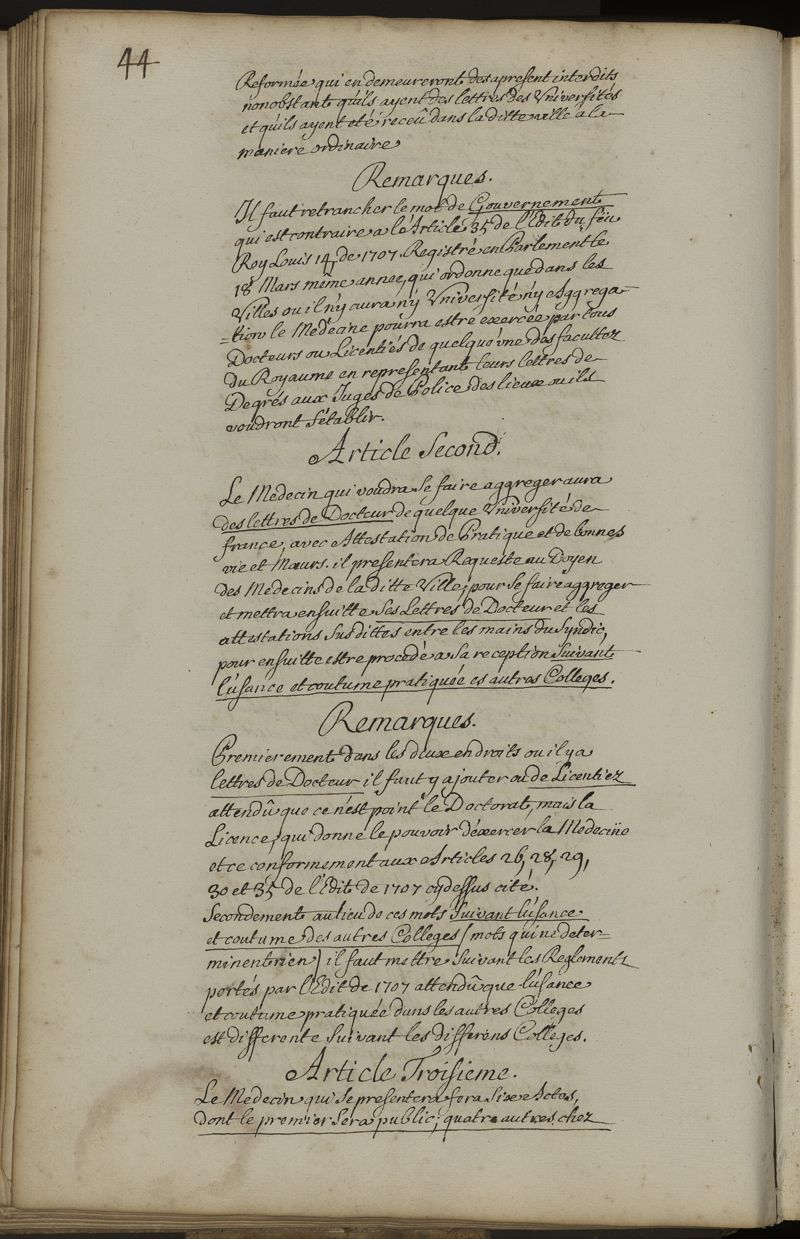 44
Reformée qui en demeureront des apresent interdits
nonobstant qu'ils ayent des lettres des Universités
et qu'ils ayent eté receû dans la ditte ville à la
maniere ordinaire
Remarques.
Il faut retrancher le mot de Gouvernement
qui est contraire a lé Article 35 de l'Edit du feu
Roy Louis 14, de 1707. Registré en Parlement le
18 Mars même année, qui ordonne que dans les
Villes ou il n'y aura n'y Université n'y Aggrega-
=tion le Medecine pourra estre exercée par tous
Docteurs ou Licentiés de quelque vne des facultez
du Royaume en representant leurs lettres de
Degrés aux Juges de Police des lieux ou ils
voudront s'établir.
Article Second.
Le Medecin qui voudra se faire aggreger aura
des lettres de Docteur de quelque Université de
france, avec Attestation de Pratique et de bonnes
vie et Mœurs. il presentera Requeste au Doyen
des Medecins de la ditte Ville, pour se faire aggreger
et mettra ensuitte ses Lettres de Docteur et les
attestations susdittes entre les mains du Syndic,
pour ensuitte estre procedé a sa reception suivant
l'usance et coutume pratiquée es autres Colleges.
Remarques.
Premierement dans les deux endroits ou il y a
lettres de Docteur il faut y ajouter ou de Licentiez
attendû que ce n'est point le Doctorat, mais la
Licence, qui donne le pouvoir d'éxercer la Medecine
et ce conformement aux Articles 26, 28, 29,
30 et 35 de l'Edit de 1707 cy dessus cité.
Secondement au lieu de ces mots suivant l'usance
et coutume des autres Colleges (mots qui ne deter-
minent rien) il faut mettre suivant les Reglements
portés par l'Edit de 1707 attendû que l'usance
et coutume pratiquée dans les autres Colleges
est differente suivant les differens Colleges.
Article Troisieme.
Le Medecin qui se presentera fera Six Actes,
dont le premier sera public, quatre autres chez